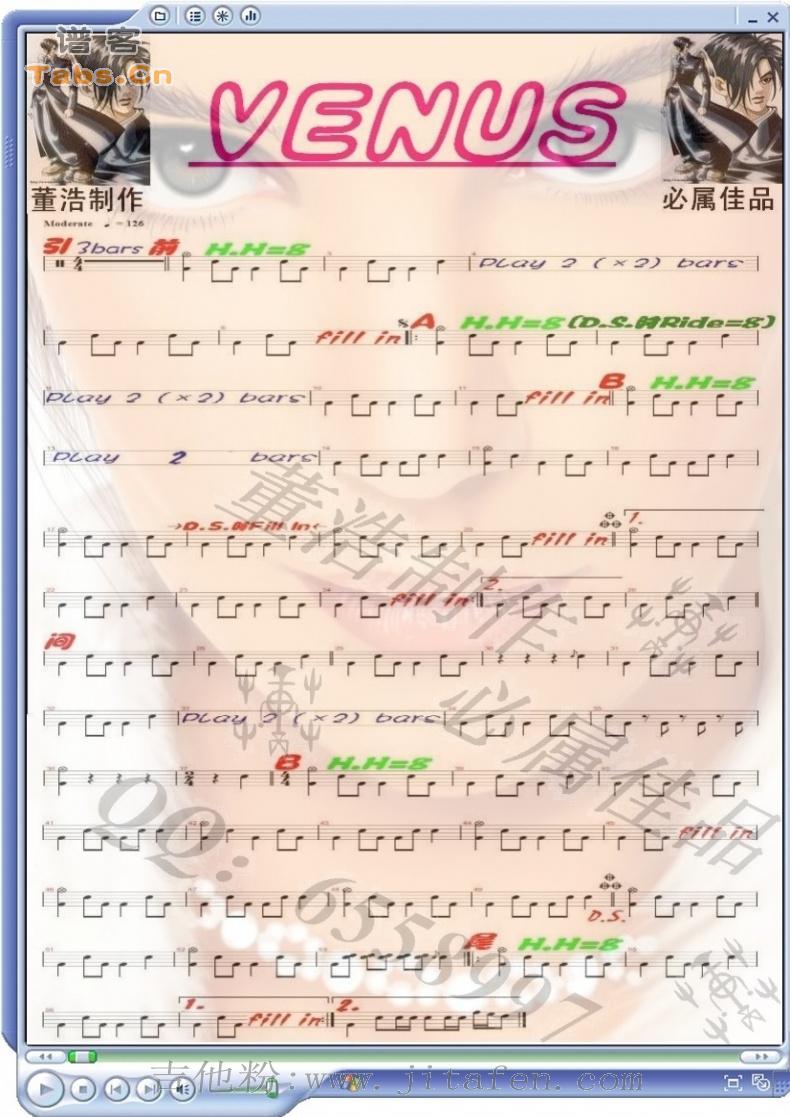 谱客
Tabs.Cn
VENUS
董浩制作
必属佳品
Moderate ♩=126
引 3bars 前 H.H=8
Play 2 (×2) bars
fill in A H.H=8 (D.S.时Ride=8)
Play 2 (×2) bars fill in B H.H=8
Play 2 bars
董浩制作
D.S.时Fill In fill in 1.
fill in 2.
间
Play 2 (×2) bars
必属佳品
B H.H=8
QQ:6558997
fill in
D.S.
尾 H.H=8
1. fill in 2.
吉他粉:www.jitafen.com